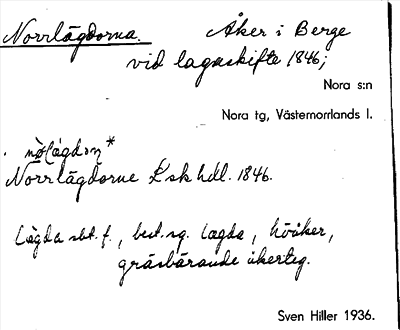 Norrlägdorna. Åker i Berge
vid lagaskifte 1846;
Nora s:n
Nora tg, Västernorrlands l.
Norrlägdorne Lsk hdl. 1846.
Lägda sbt. f., best. sg. lagda, höåker,
gräsbärande åkerteg.
Sven Hiller 1936.